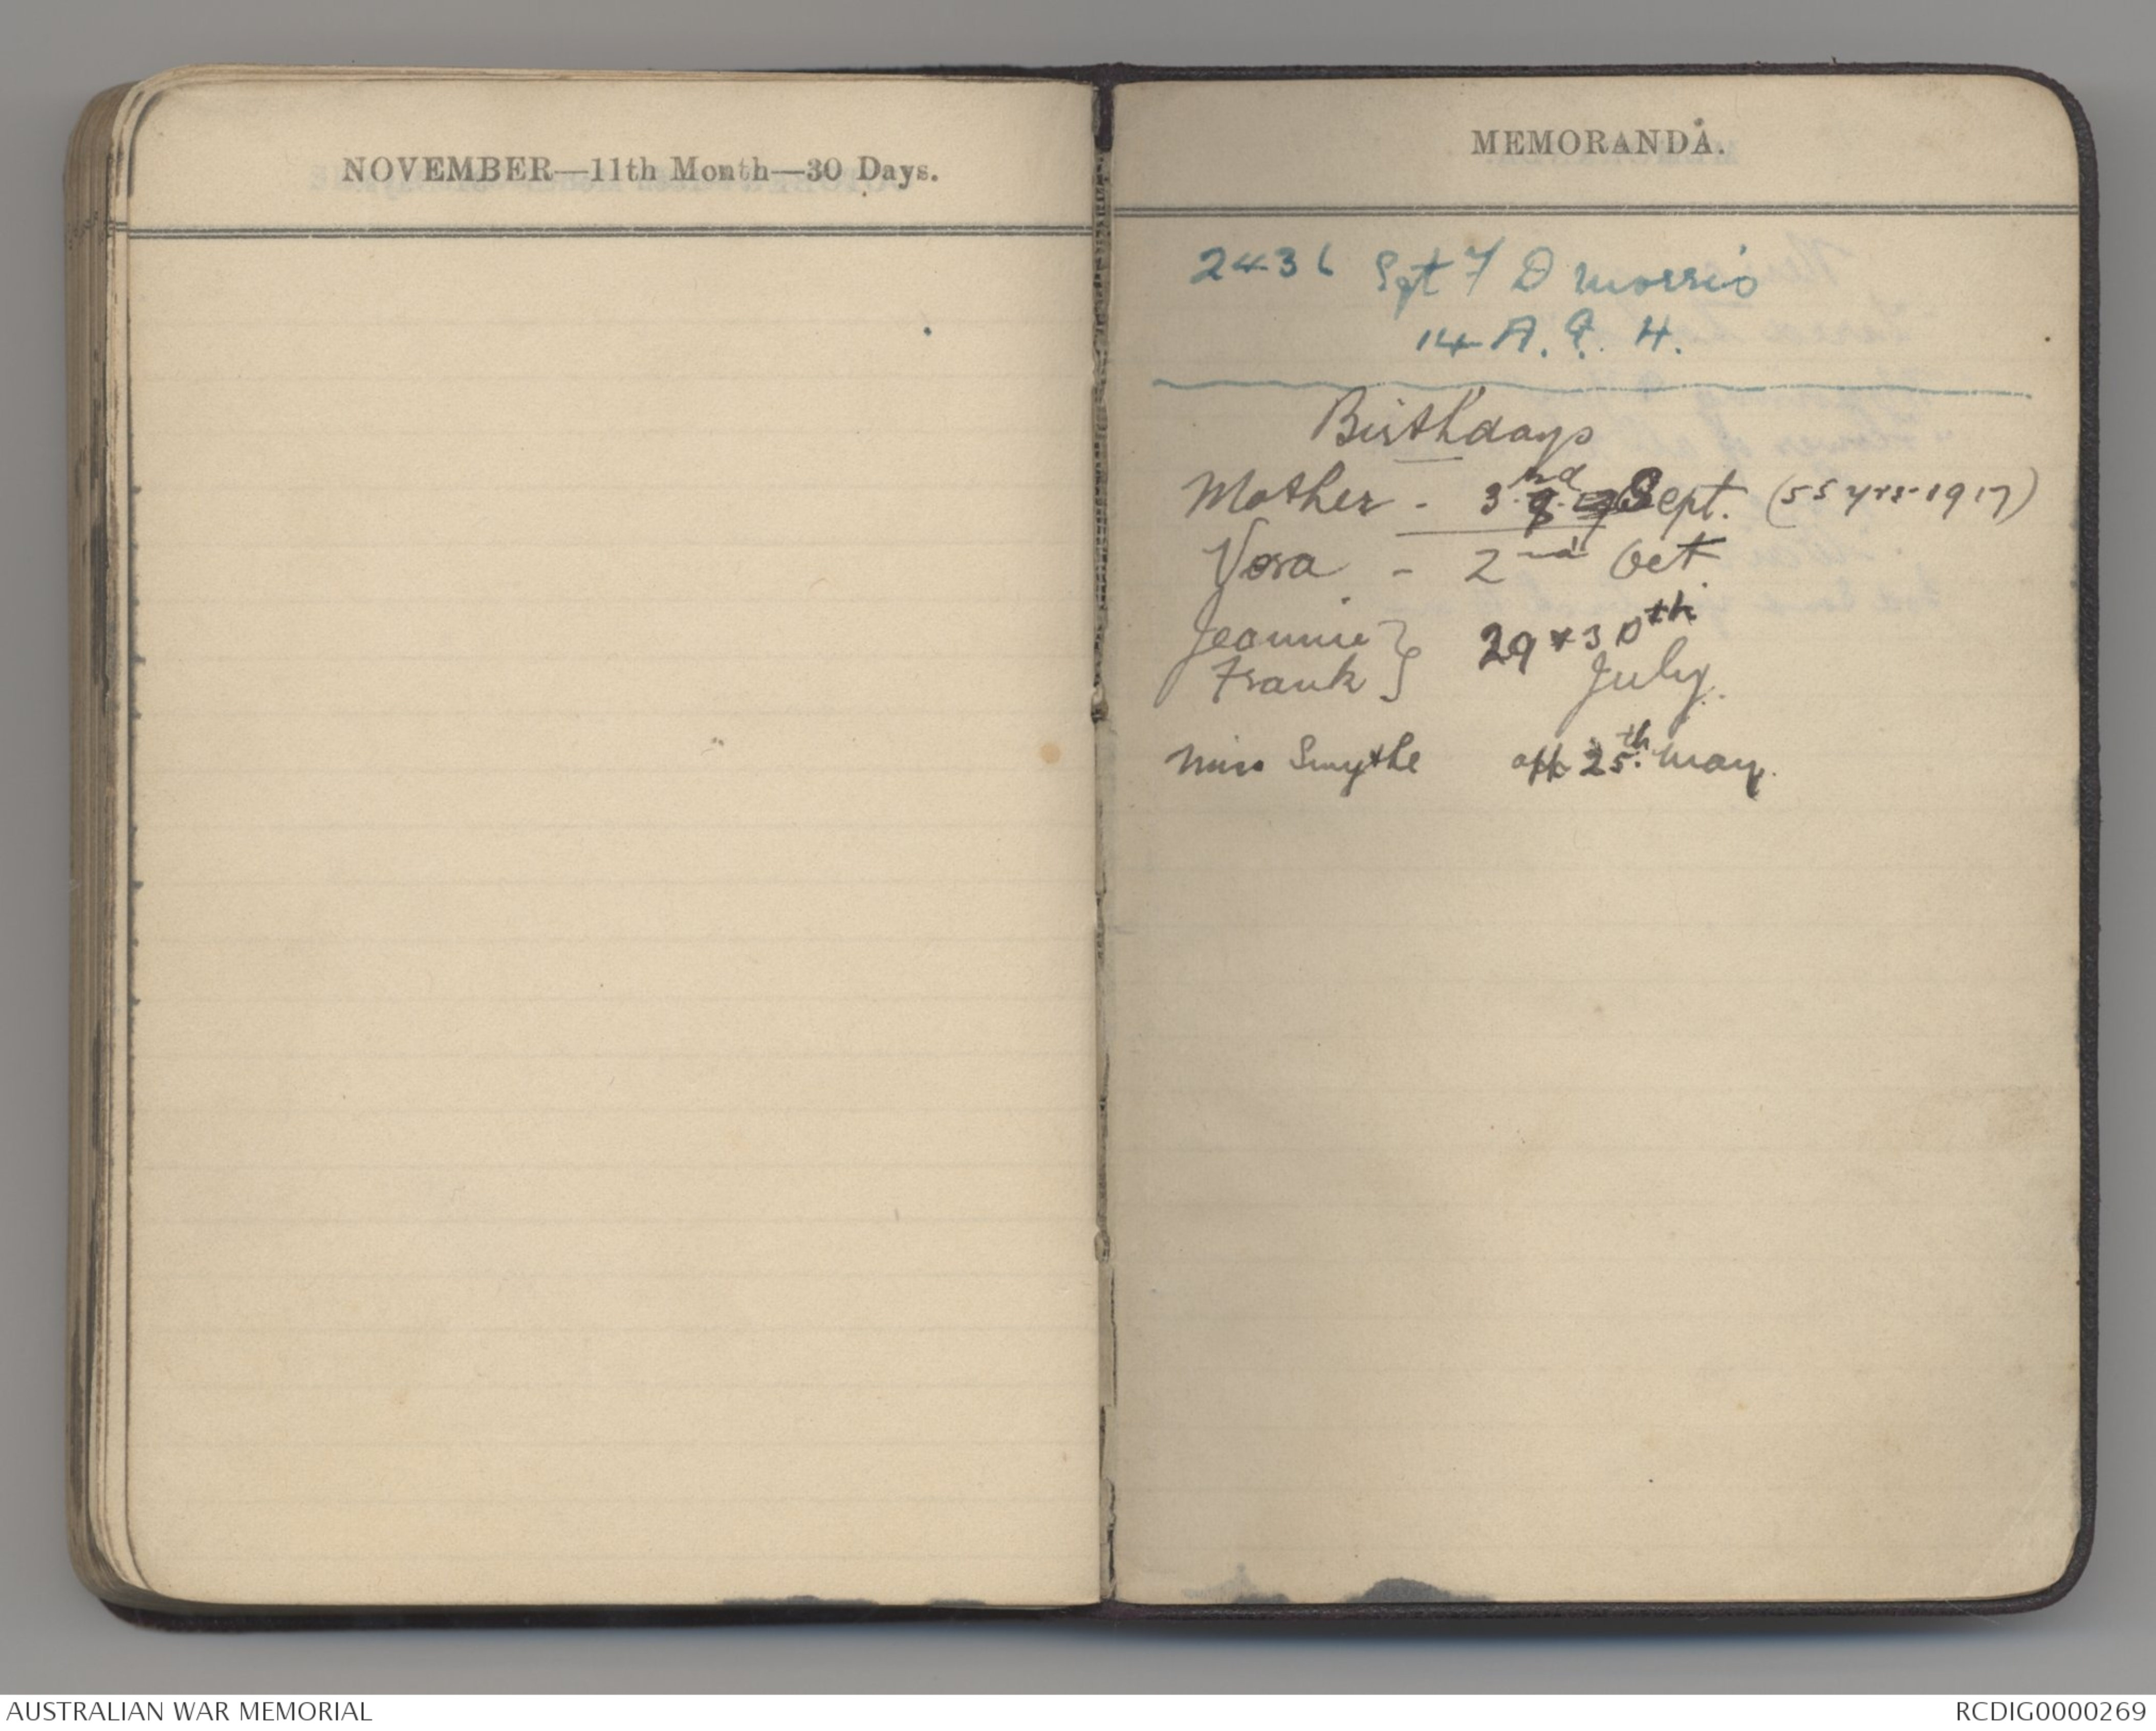 NOVEMBER—11th Month—30 Days.
MEMORANDA.
2436 Sgt F D Morris
14 A. G. H.
Birthdays
Mother - 3rd Sept. (55 yrs-1917)
Vera - 2nd Oct.
Jeannie } 29 + 30th
Frank } July.
Miss Smythe app 25th May.
AUSTRALIAN WAR MEMORIAL
RCDIG0000269